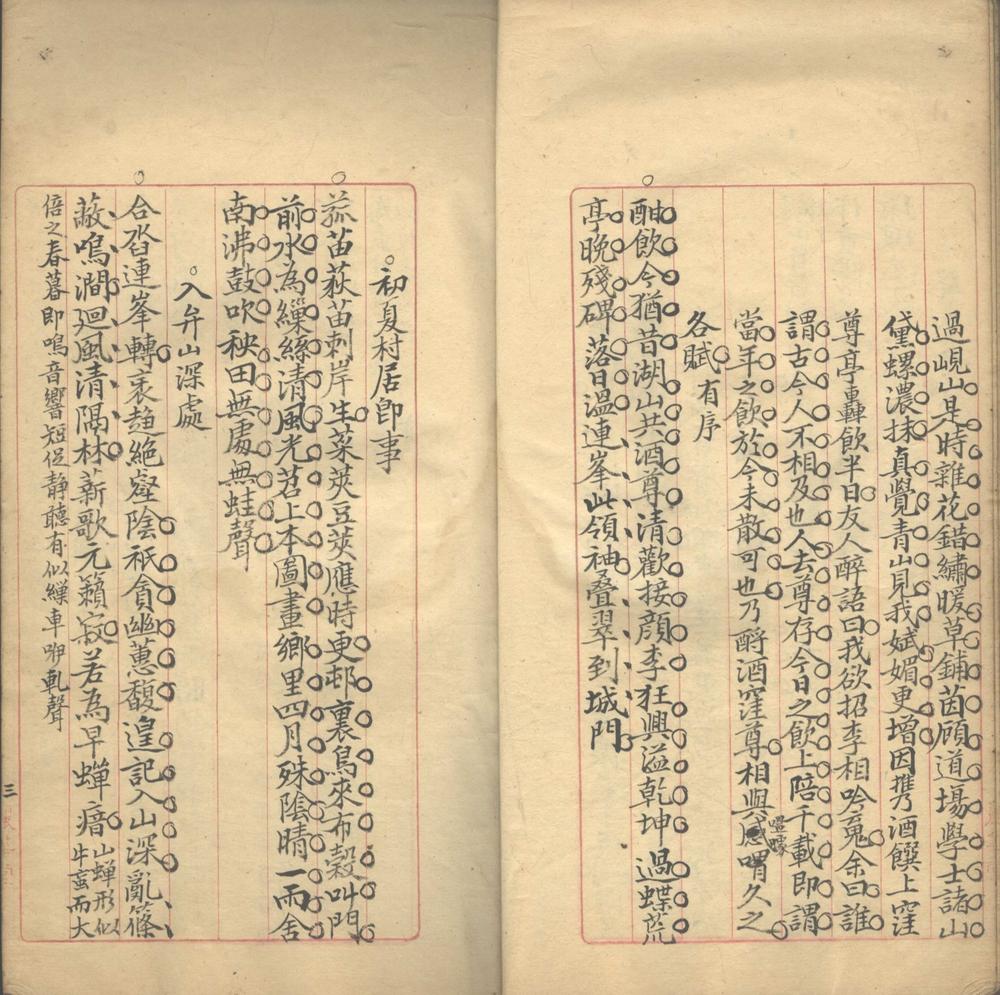 過峴山是時雜花錯繡暖草鋪茵顧道場學士諸山
黛螺濃抹真覺青山見我嫵媚更增因携酒饌上窪
尊亭轟飲半日友人醉語曰我欲招李相吟䰟余曰誰
謂古今人不相及也人去尊存今日之飲上陪千載即謂
當年之飲於今未散可也乃酹酒窪尊相與感喟久之
噫嚱
各賦有序
酣飲今猶昔湖山共酒尊清歡接顔李狂興溢乾坤過蝶荒
亭晚殘碑落日溫連峯此領袖叠翠到城門
初夏村居即事
菰苗荻苗刺岸生菜莢豆莢應時更邨裏鳥來布穀叫門
前水為繅絲清風光苕上本圖畫鄉里四月殊陰晴一雨舍
南沸鼓吹秧田無處無蛙聲
入弁山深處
合沓連峯轉衺趨絶壑陰祇貪幽蕙馥遑記入山深亂篠
蔽鳴澗廻風清隔林薪歌元籟寂若為早蟬瘖山蟬形似牛蝱而大
倍之春暮即鳴音響短促静聽有似繅車咿軋聲
三